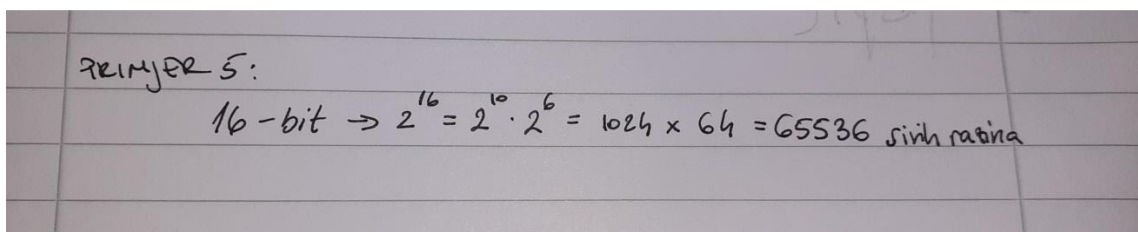 PRIMJER 5:
16-bit → 2^16 = 2^10 · 2^6 = 1024 x 64 = 65536 sivih razina